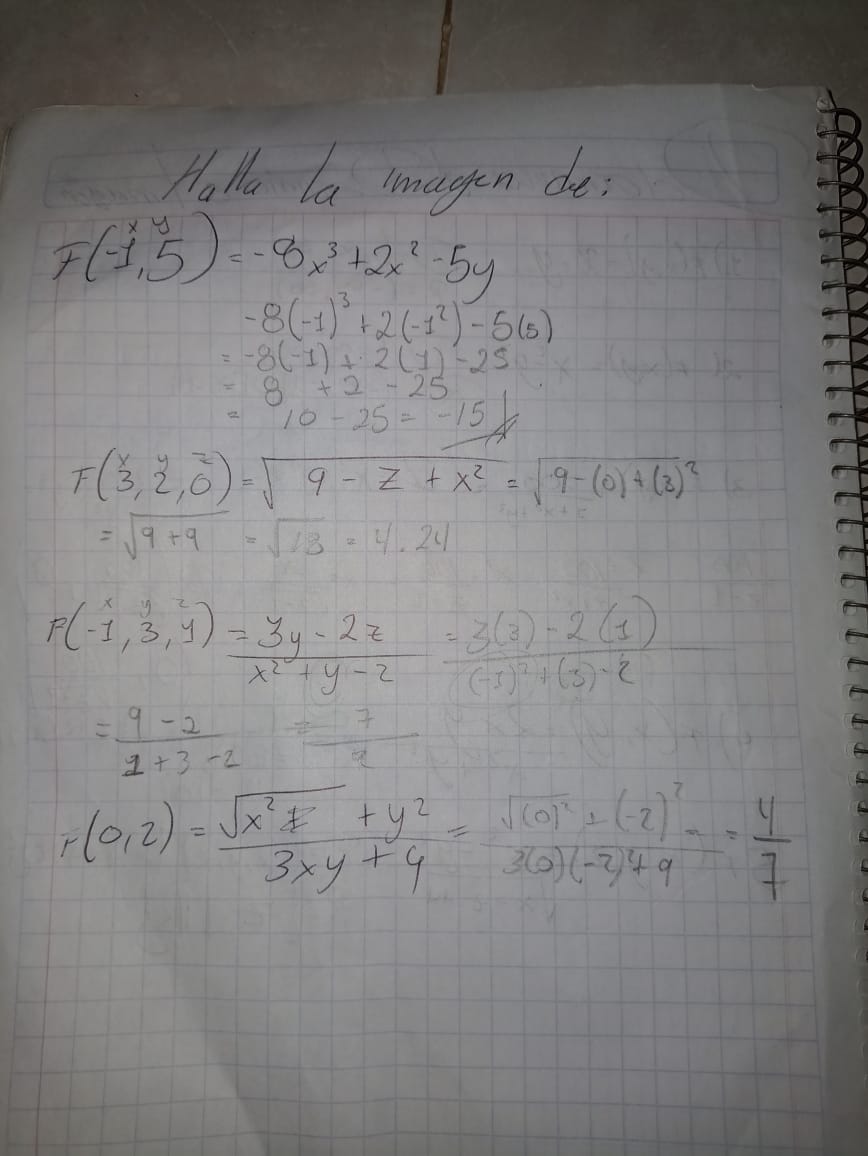 Halla la imagen de:
x y
F(-1,5) = -8x³ + 2x² - 5y
-8(-1)³ + 2(-1²) - 5(5)
= -8(-1) + 2(1) - 25
= 8 + 2 - 25
= 10 - 25 = -15
x y z
F(3,2,0) = √9 - z + x² = √9 - (0) + (3)²
= √9 + 9 = √18 = 4.24
x y z
F(-1,3,1) = 3y - 2z / x² + y - 2 = 3(3) - 2(1) / (-1)² + (3) - 2
= 9 - 2 / 1 + 3 - 2 = 7 / 2
F(0,2) = √x² + y² / 3xy + 9 = √(0)² + (-2)² / 3(0)(-2) + 9 = 4 / 7